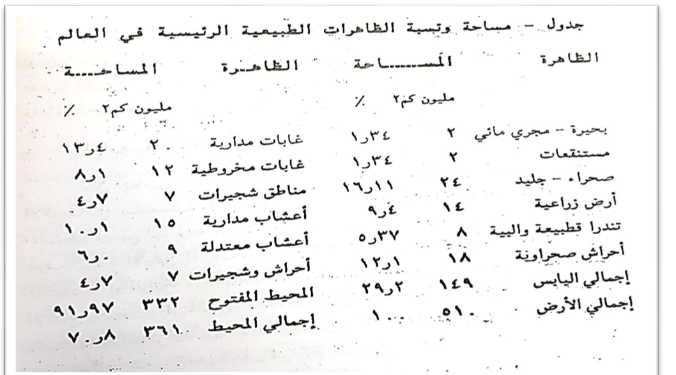 جدول - مساحة ونسبة الظاهرات الطبيعية الرئيسية في العالم
الظاهرة المســـاحة الظاهـرة المساحــة
مليون كم٢ ٪ مليون كم٢ ٪
بحيرة - مجري مائي ٢ ٣٤ر١ غابات مدارية ٢٠ ٤ر١٣
مستنقعات ٢ ٣٤ر١ غابات مخروطية ١٢ ١ر٨
صحراء - جليد ٢٤ ١١ر١٦ مناطق شجيرات ٧ ٧ر٤
أرض زراعية ١٤ ٤ر٩ أعشاب مدارية ١٥ ١ر١٠
تندرا قطبيعة والبية ٨ ٣٧ر٥ أعشاب معتدلة ٩ ٠ر٦
أحراش صحراوية ١٨ ١ر١٢ أحراش وشجيرات ٧ ٧ر٤
إجمالي اليابس ١٤٩ ٢ر٢٩ المحيط المفتوح ٣٣٢ ٩٧ر٩١
إجمالي الأرض ٥١٠ ١٠٠ إجمالي المحيط ٣٦١ ٨ر٧٠